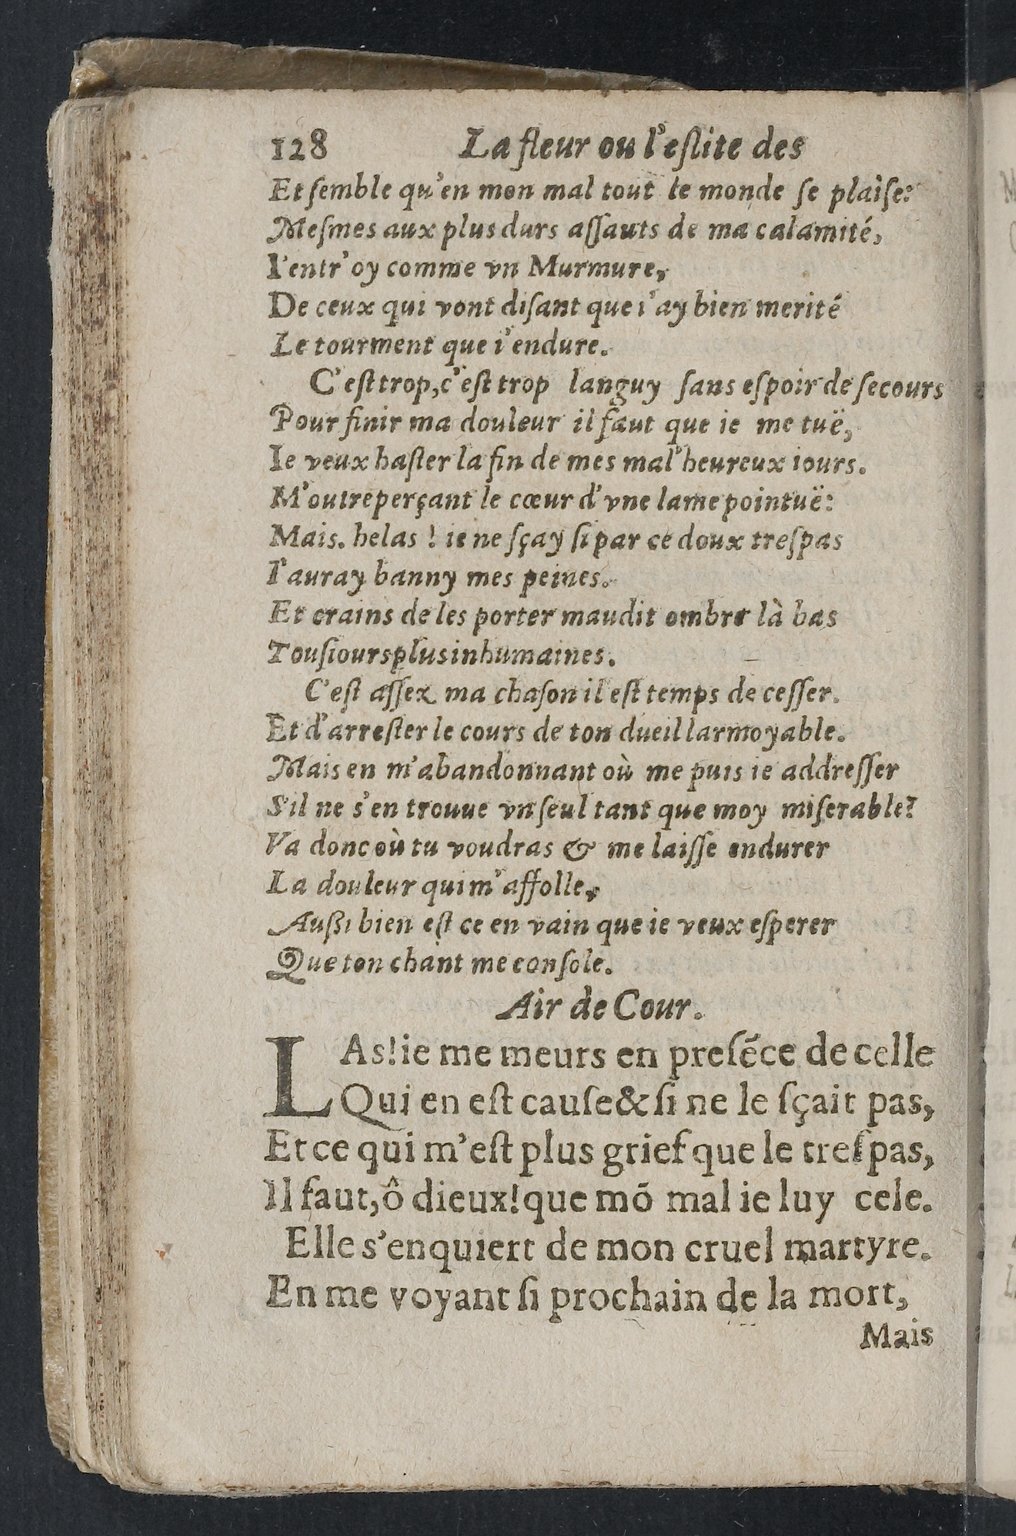 128 La fleur ou l'eſlite des
Et ſemble qu'en mon mal tout le monde ſe plaiſe:
Meſmes aux plus durs aſſauts de ma calamité,
I'entr'oy comme vn Murmure,
De ceux qui vont diſant que i'ay bien merité
Le tourment que i'endure.
C'eſt trop, c'eſt trop languy ſans eſpoir de ſecours
Pour finir ma douleur il faut que ie me tuë,
Ie veux haſter la fin de mes mal'heureux iours.
M'outreperçant le cœur d'vne lame pointuë:
Mais. helas ! ie ne ſçay ſi par ce doux treſpas
I'auray banny mes peines.
Et crains de les porter maudit ombre là bas
Touſiours plus inhumaines.
C'eſt aſſez ma chaſon il eſt temps de ceſſer.
Et d'arreſter le cours de ton dueil larmoyable.
Mais en m'abandonnant où me puis ie addreſſer
S'il ne s'en trouue vn ſeul tant que moy miſerable?
Va donc où tu voudras & me laiſſe endurer
La douleur qui m'affolle,
Auſſi bien eſt ce en vain que ie veux eſperer
Que ton chant me conſole.
Air de Cour.
LAs! ie me meurs en preſẽce de celle
Qui en eſt cauſe & ſi ne le ſçait pas,
Et ce qui m'eſt plus grief que le treſpas,
Il faut, ô dieux! que mõ mal ie luy cele.
Elle s'enquiert de mon cruel martyre.
En me voyant ſi prochain de la mort,
Mais